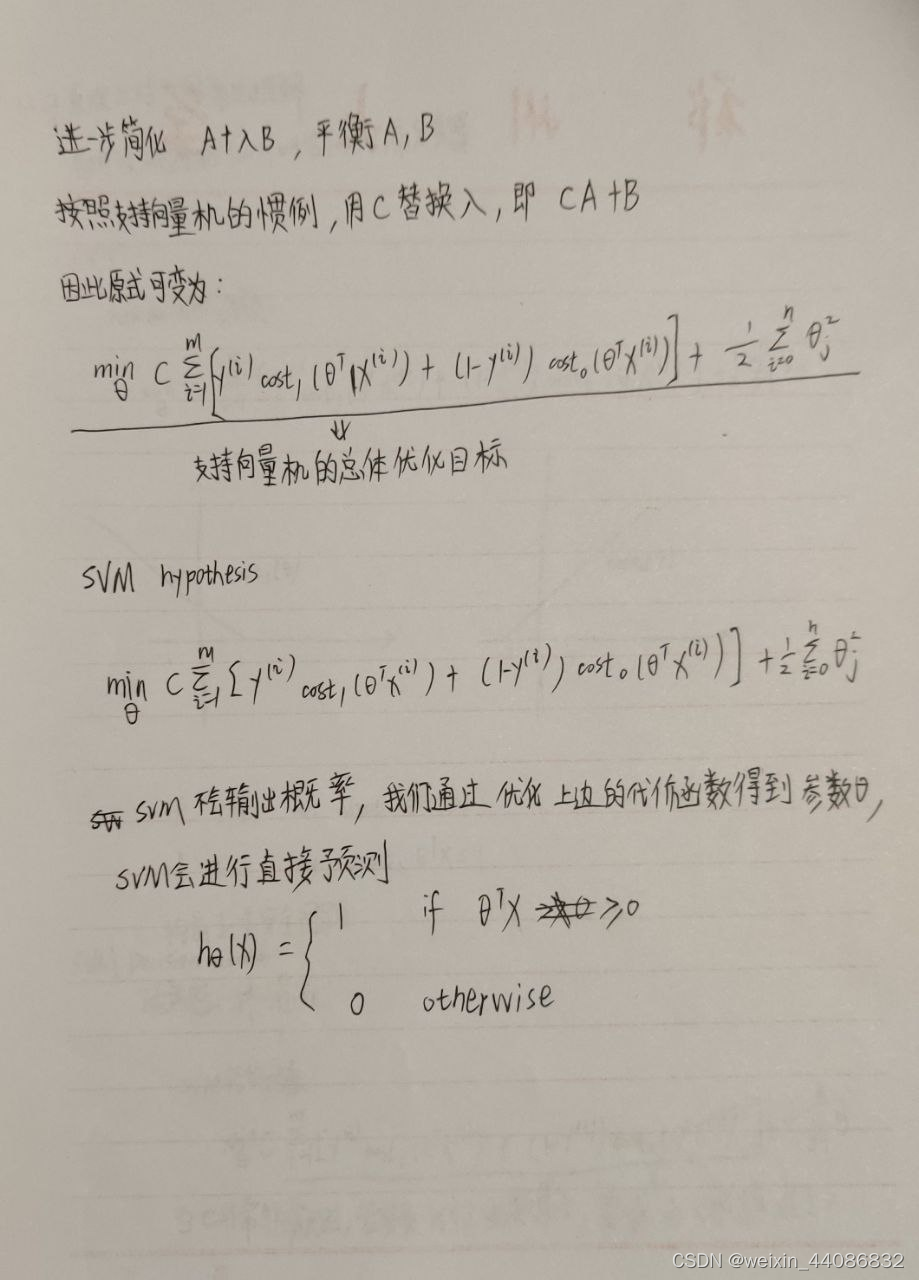 进一步简化 A+λB，平衡A, B
按照支持向量机的惯例，用C替换λ，即 CA+B
因此原式可变为：
min_θ C Σ_{i=1}^{m} [y^{(i)} cost_1(θ^T X^{(i)}) + (1-y^{(i)}) cost_0(θ^T X^{(i)})] + 1/2 Σ_{i=0}^{n} θ_j^2
⇓
支持向量机的总体优化目标
SVM hypothesis
min_θ C Σ_{i=1}^{m} [y^{(i)} cost_1(θ^T X^{(i)}) + (1-y^{(i)}) cost_0(θ^T X^{(i)})] + 1/2 Σ_{i=0}^{n} θ_j^2
SVM 不会输出概率，我们通过优化上边的代价函数得到参数θ，
SVM会进行直接预测
h_θ(X) = { 1 if θ^T X ≥0
0 otherwise
CSDN @weixin_44086832